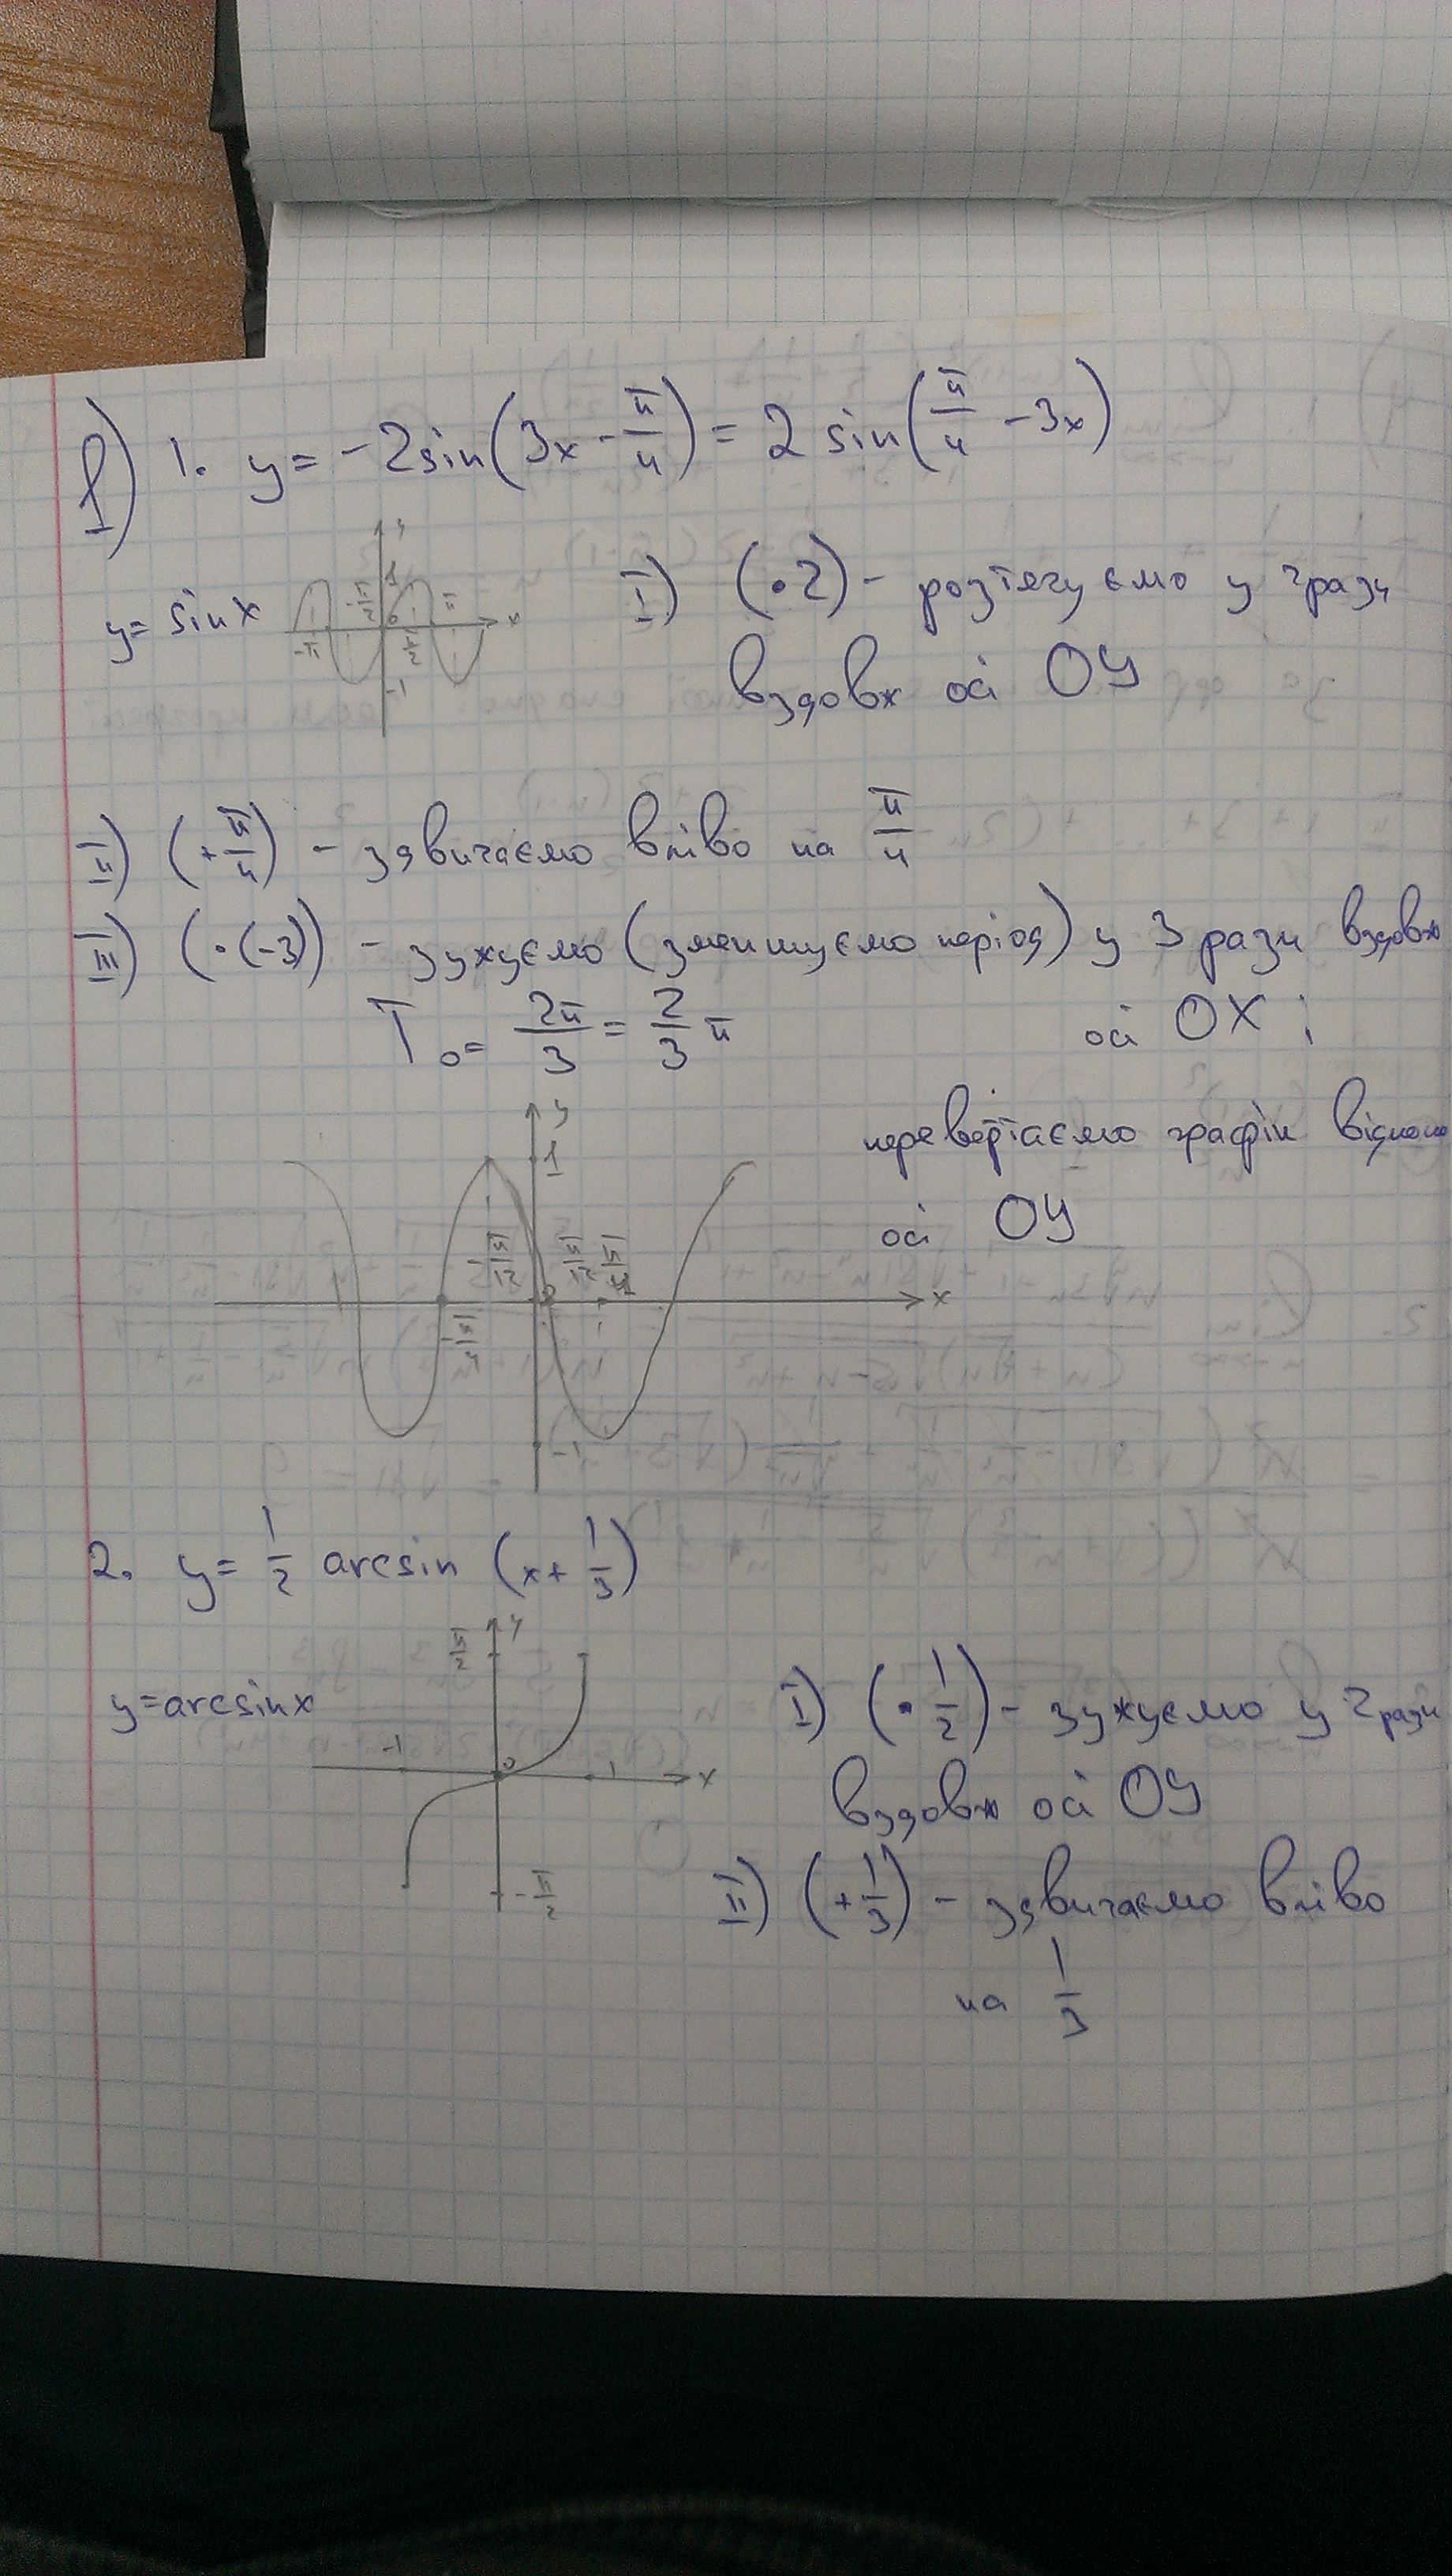 f) 1. y = -2sin(3x - π/4) = 2 sin(π/4 - 3x)
y = sin x
y
1
-π/2
π
-π
0
π/2
x
-1
I) (•2) - розтягуємо у 2 рази
вздовж осі OY
II) (+π/4) - здвигаємо вліво на π/4
III) (•(-3)) - зужуємо (зменшуємо період) у 3 рази вздовж
T₀ = 2π/3 = 2/3 π
осі OX ;
перевертаємо графік відносно
осі OY
y
1
-π/12
π/12
π/4
0
x
-π/4
-1
2. y = 1/2 arcsin (x + 1/3)
y
π/2
y = arcsin x
-1
0
1
x
-π/2
I) (• 1/2) - зужуємо у 2 рази
вздовж осі OY
II) (+1/3) - здвигаємо вліво
на 1/3